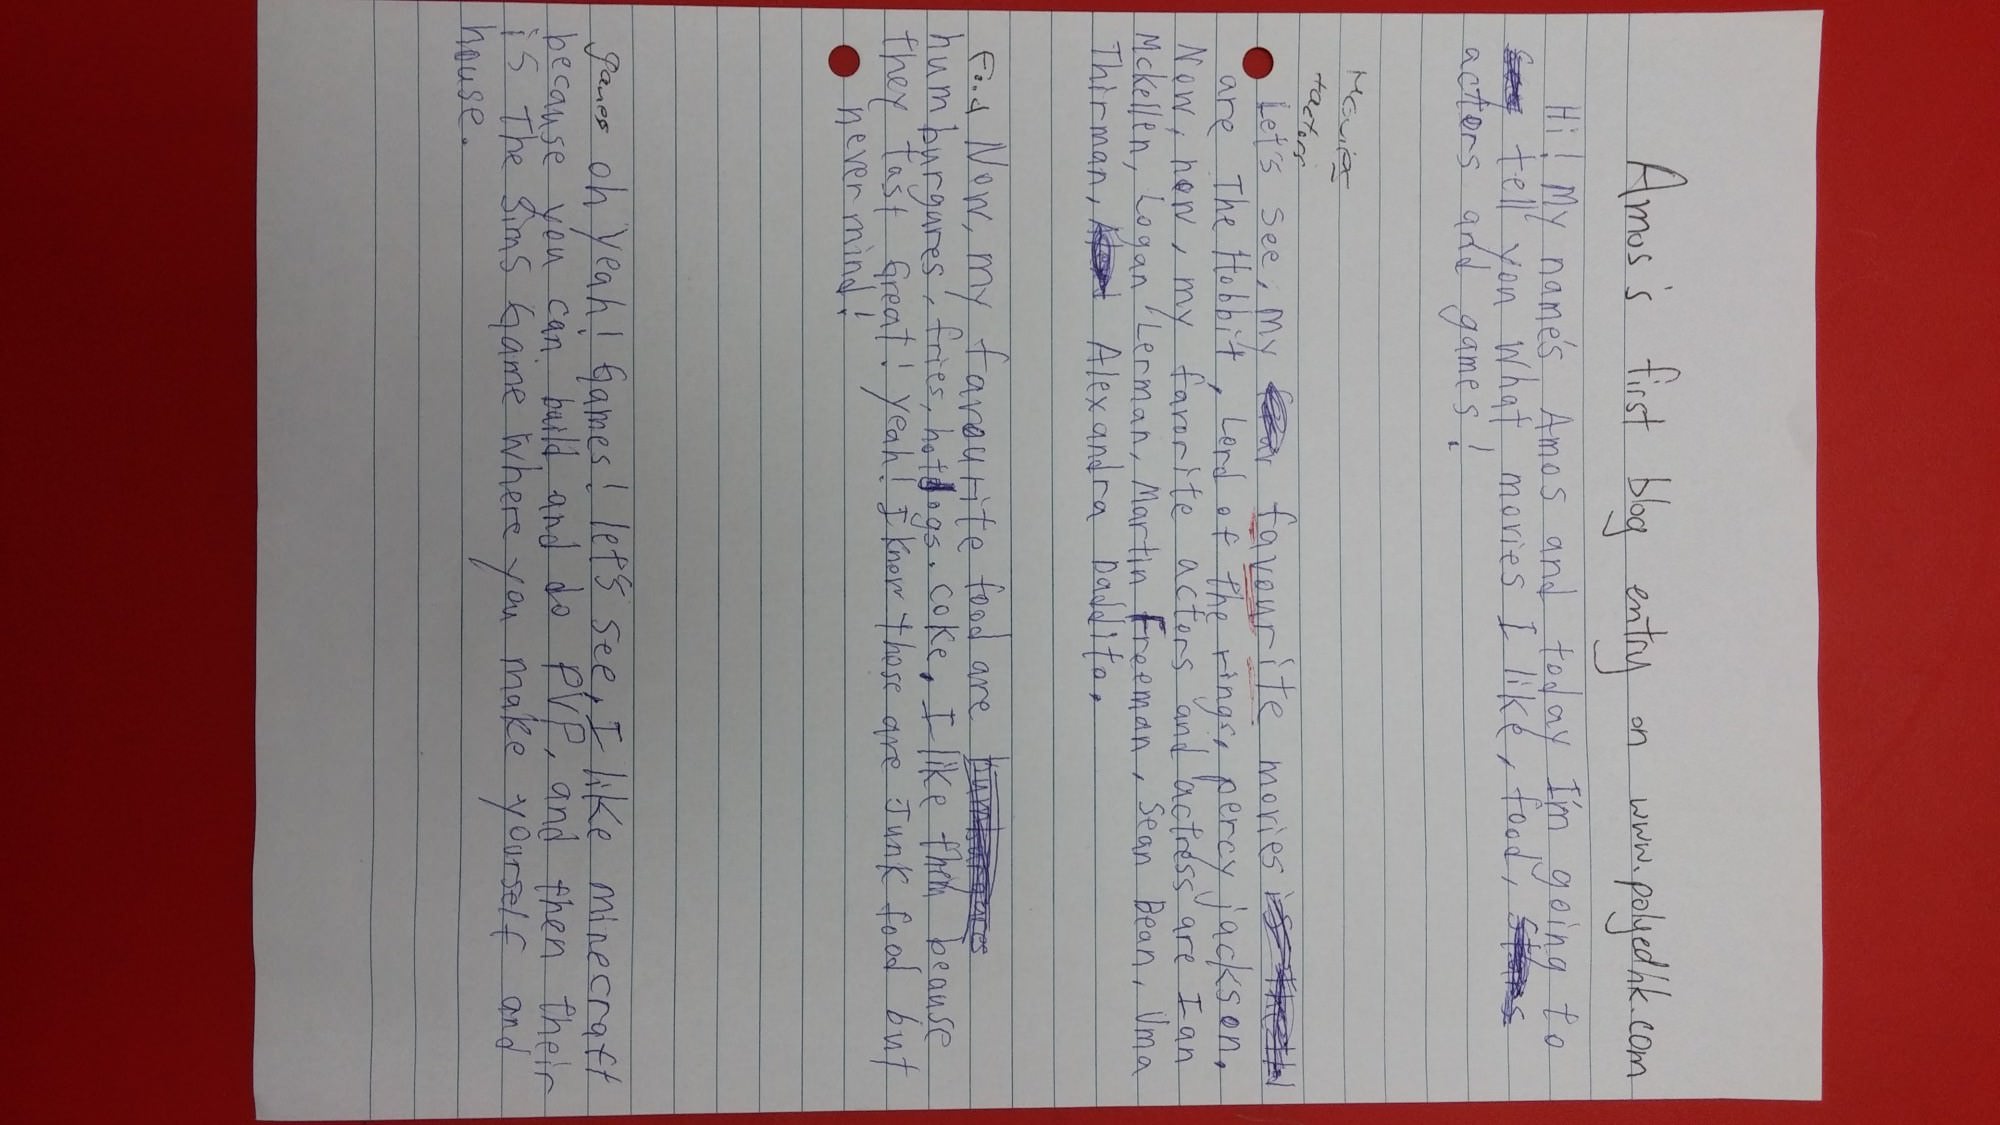 Amos's first blog entry on www.polyedhk.com
Hi! My name's Amos and today I'm going to
tell you what movies I like, food,
actors and games!
Movies
+actors
Let's see, my favourite movies
are The Hobbit, Lord of the rings, percy jackson.
Now, how, my favorite actors and actress are Ian
Mckellen, Logan Lerman, Martin Freeman, Sean Bean, Uma
Thirman, Alexandra Daddito.
Food Now, my favourite food are
humburgures, fries, hotdogs, coke, I like them beause
they tast Great! yeah! I know those are Junk food but
never mind!
games oh yeah! Games! let's see, I like minecraft
because you can build and do PVP, and then their
is The Sims Game where you make yourself and
house.